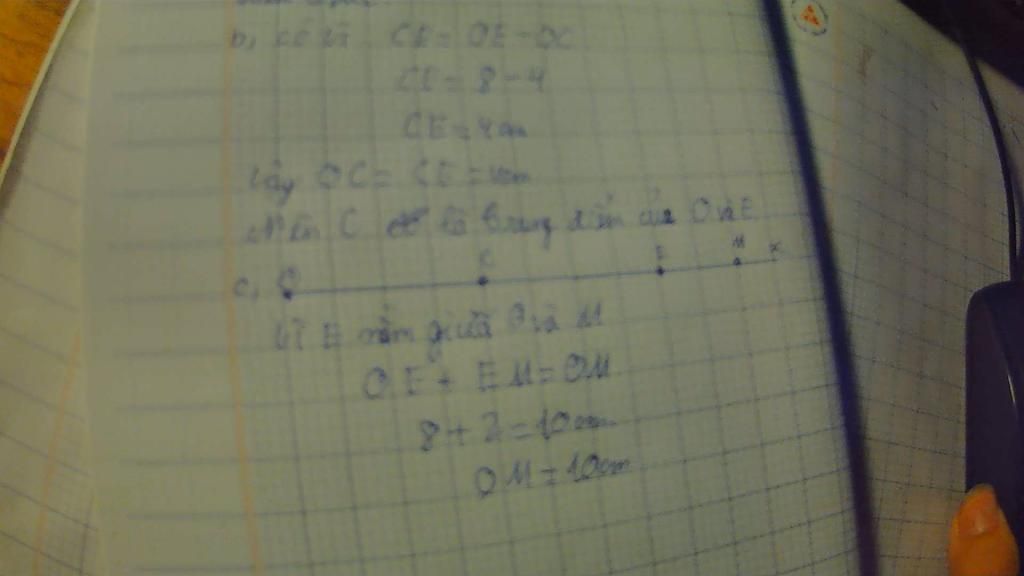 b, CE = OE - OC
CE = 8 - 4
CE = 4cm
Vậy OC = CE = 4cm
Nên C là trung điểm của O và E
c, O C E M x
Vì E nằm giữa O và M
OE + EM = OM
8 + 2 = 10cm
OM = 10cm